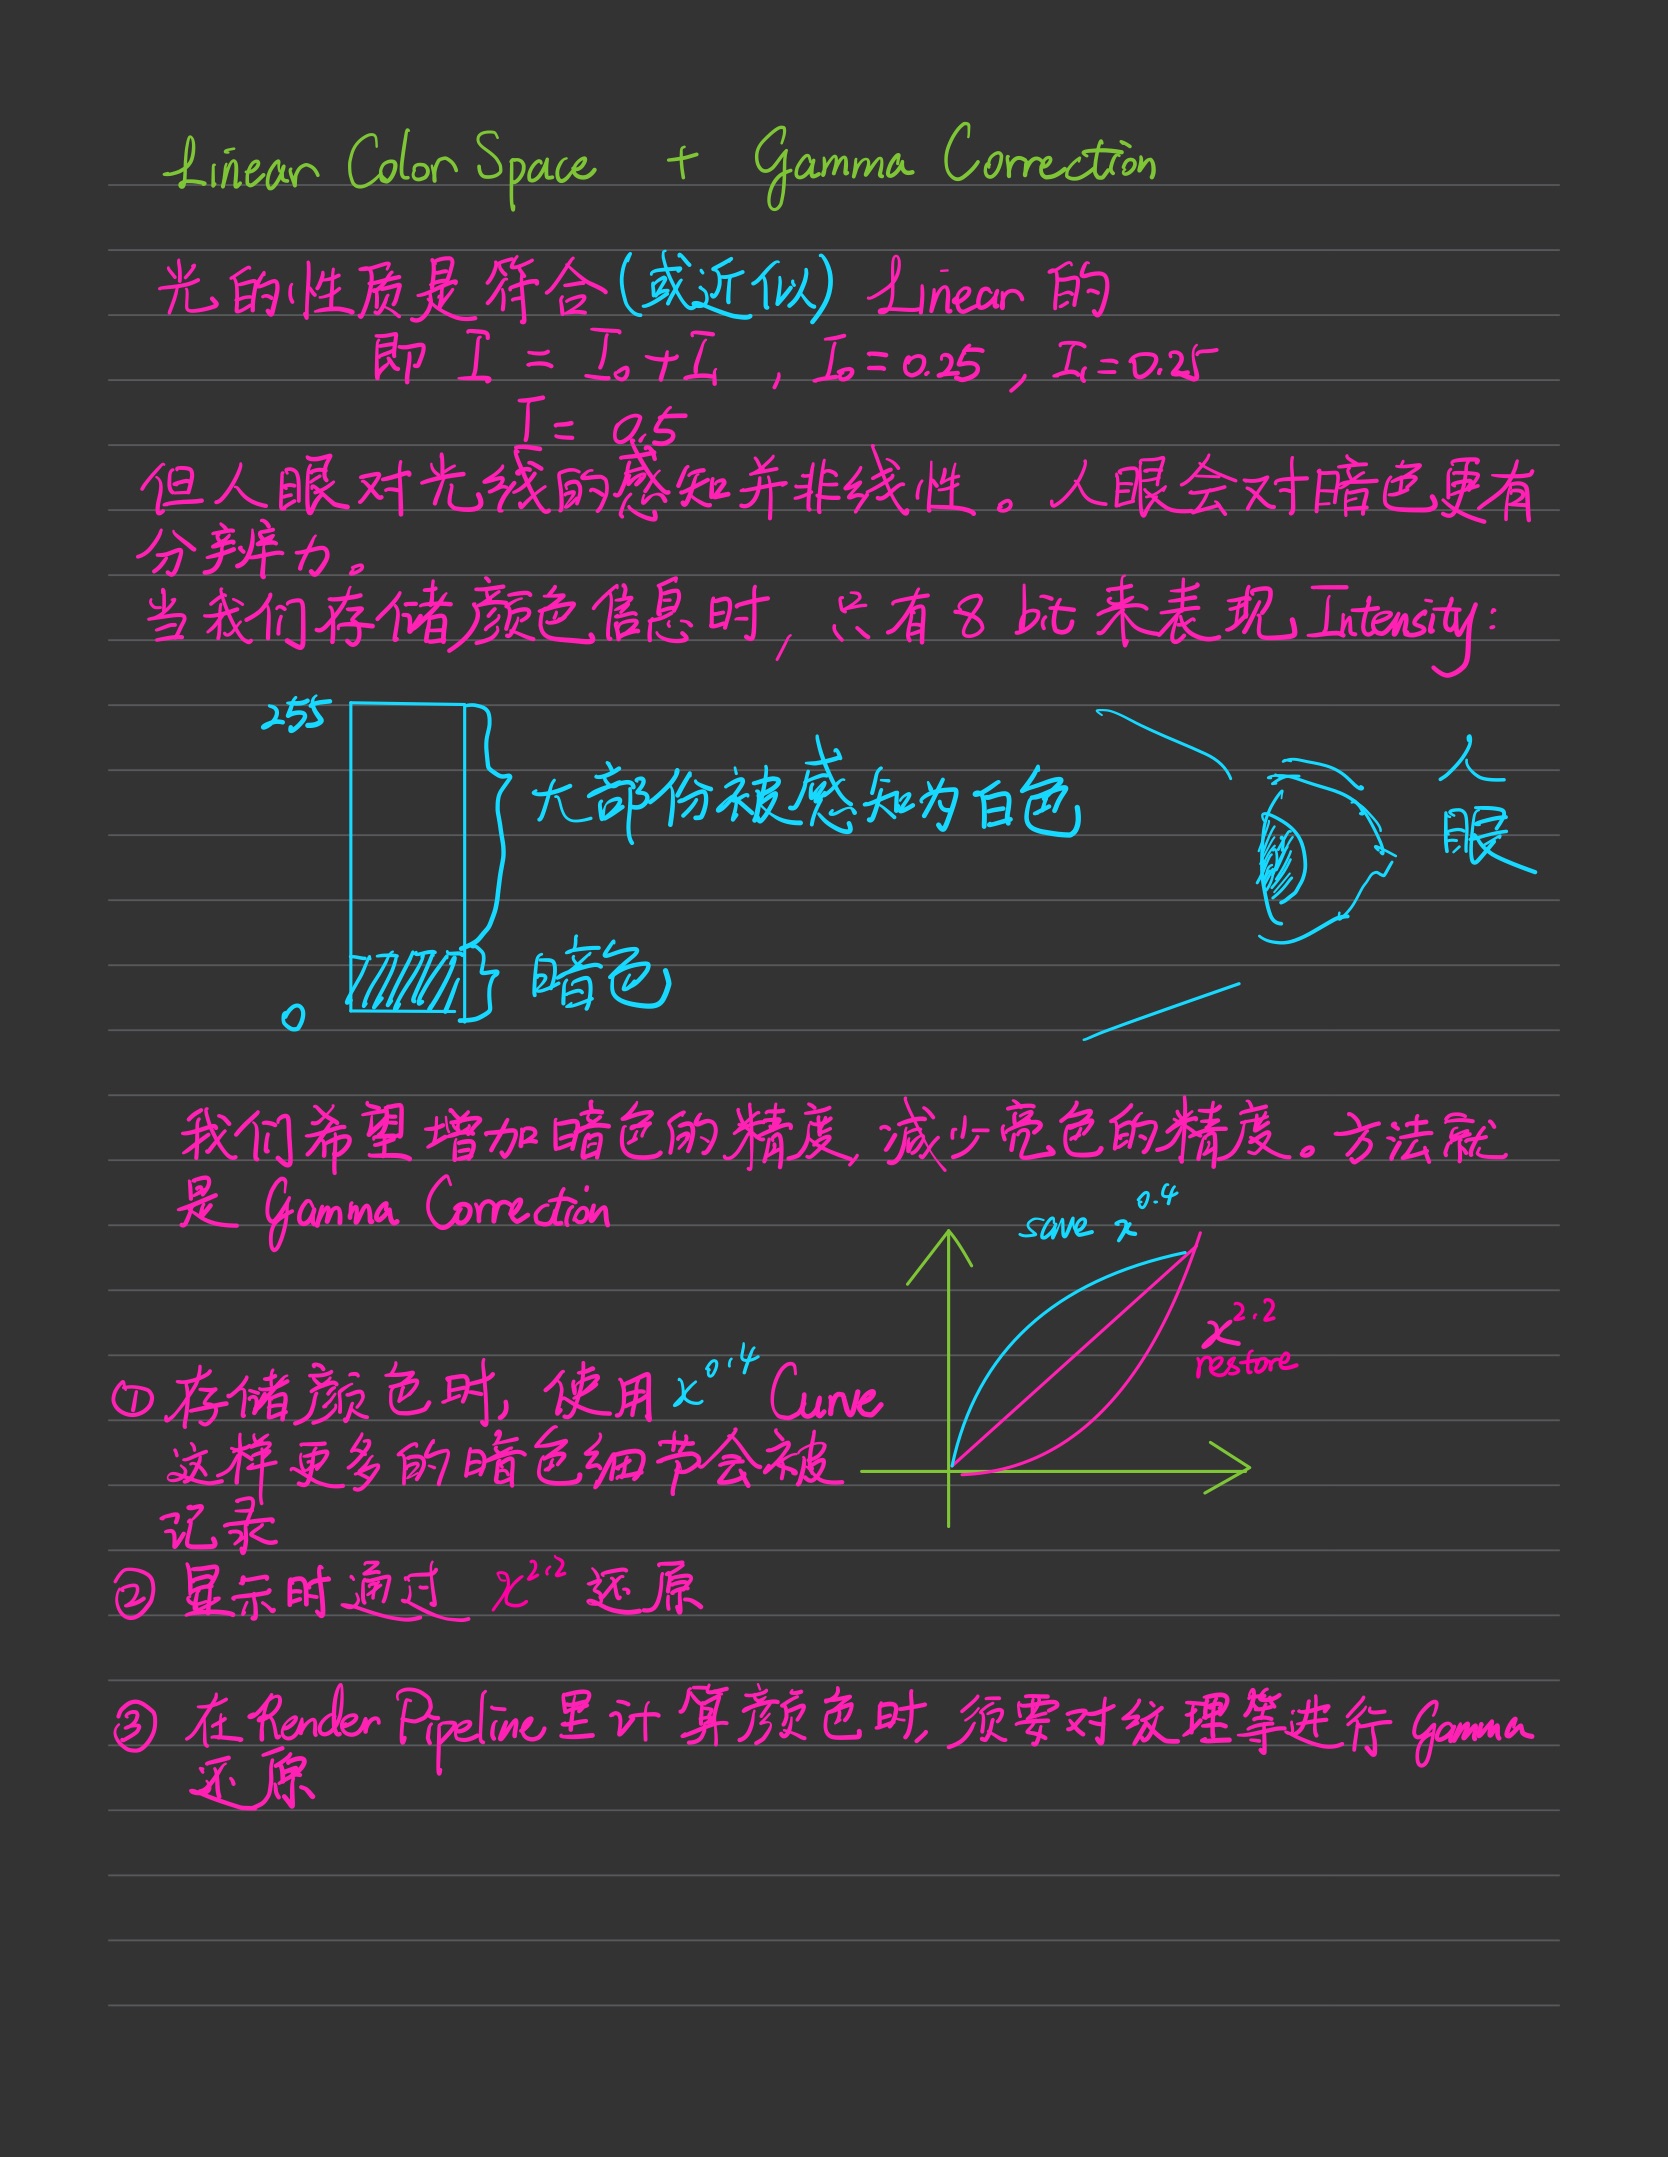 Linear Color Space + Gamma Correction
光的性质是符合(或近似) Linear 的
即 I = I₀ + I₁ , I₀ = 0.25 , I₁ = 0.25
I = 0.5
但人眼对光线的感知并非线性。人眼会对暗色更有
分辨力。
当我们存储颜色信息时, 只有 8 bit 来表现 Intensity:
255
大部份被感知为白色
人
眼
暗色
0
我们希望增加暗色的精度, 减少亮色的精度。方法就
是 Gamma Correction
save x^0.4
x^2.2
restore
① 存储颜色时, 使用 x^0.4 Curve
这样更多的暗色细节会被
记录
② 显示时通过 x^2.2 还原
③ 在 Render Pipeline 里计算颜色时, 须要对纹理等进行 Gamma
还原